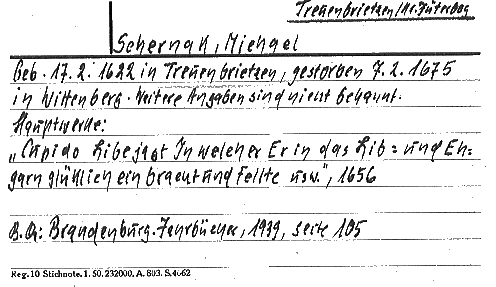 Treuenbrietzen/Kr. Jüterbog
Schernak, Michael
Geb. 17.2.1622 in Treuenbrietzen, gestorben 7.2.1675
in Wittenberg. Weitere Angaben sind nicht bekannt.
Hauptwerke:
„Cupido Libejagt In welcher Er in das Lib= und Eh-
garn glüklich ein braeut und fellte usw.", 1656
B.Qu: Brandenburg. Jahrbücher, 1939, Seite 105
Reg. 10 Stichnote. 1. 50. 232000. A. 803. S. 4662